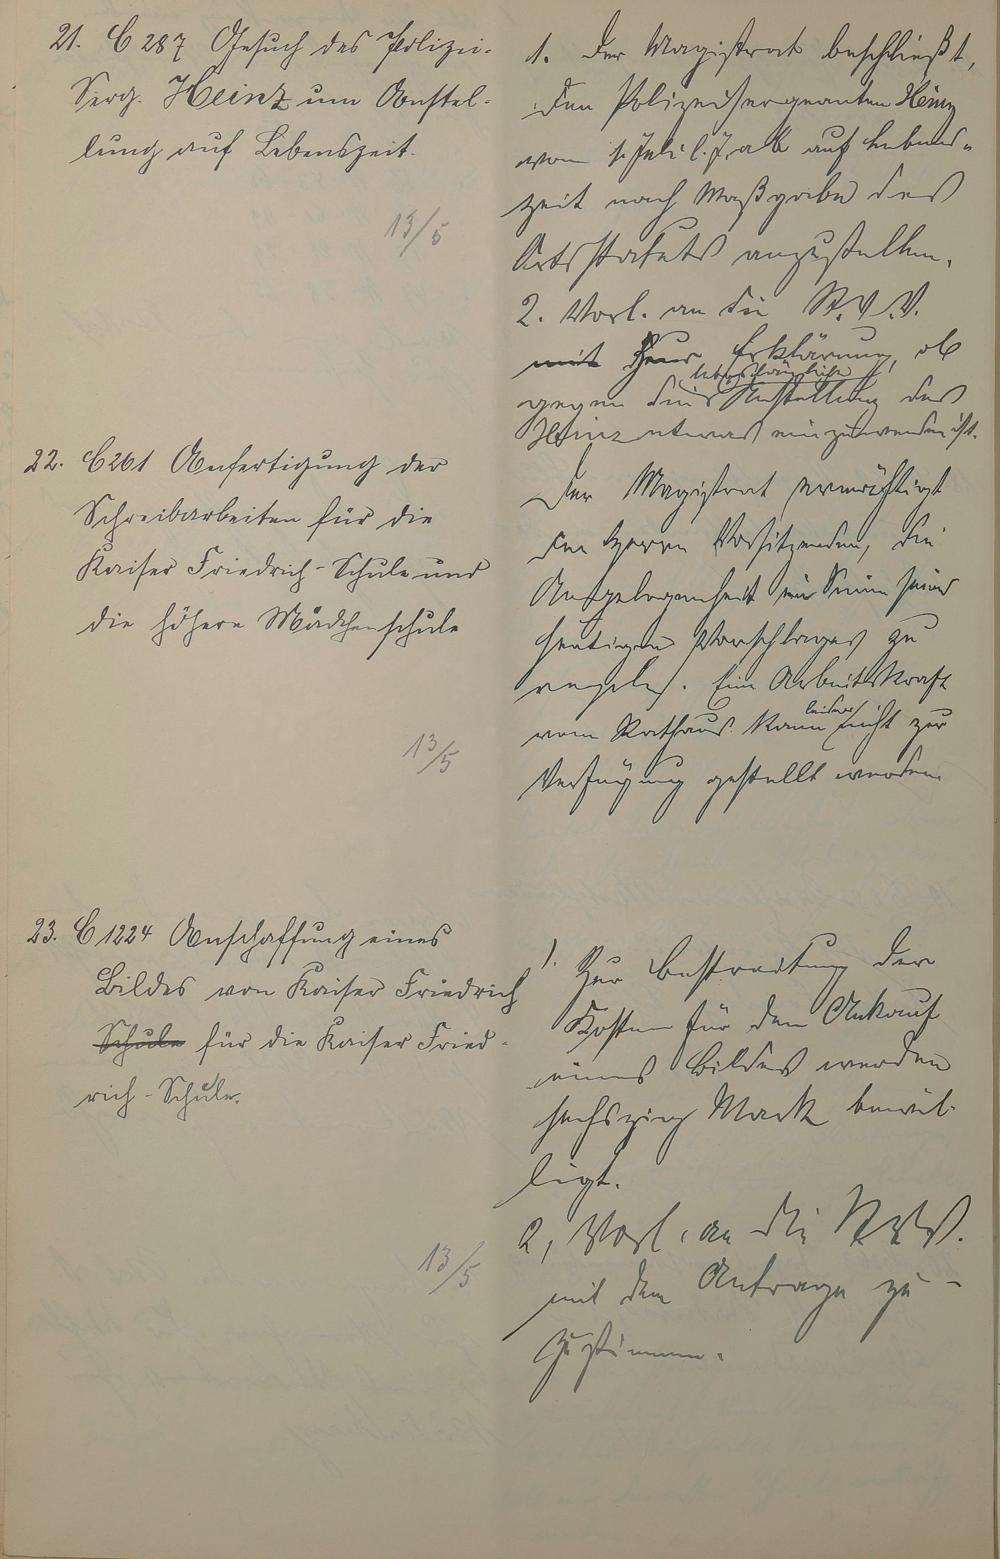 21. C 287 Gesuch des Polizei-
Serg. Heinz um Anstel-
lung auf Lebenszeit.
13/5
1. Der Magistrat beschließt,
den Polizeisergeanten Heinz
vom 1. Juli l. J. ab auf Lebens-
zeit nach Maßgabe des
Ortsstatuts anzustellen.
2. Vorl. an die St. V. V.
mit Erklärung, ob
lebenslängliche
gegen die Anstellung des
Heinz etwas einzuwenden ist.
22. C 261 Anfertigung der
Schreibarbeiten für die
Kaiser Friedrich-Schule und
die höhere Mädchenschule
13/5
Der Magistrat ermächtigt
den Herrn Vorsitzenden, die
Angelegenheit im Sinne seines
heutigen Vorschlages zu
regeln. Eine Arbeitskraft
leider
vom Rathaus kann nicht zur
Verfügung gestellt werden
23. C 1224 Anschaffung eines
Bildes von Kaiser Friedrich
Schule für die Kaiser Fried-
rich-Schule.
13/5
1. Zur Bestreitung der
Kosten für den Ankauf
eines Bildes werden
sechszig Mark bewil-
ligt.
2, Vorl. an die St. V. V.
mit dem Antrage zu-
zustimmen.